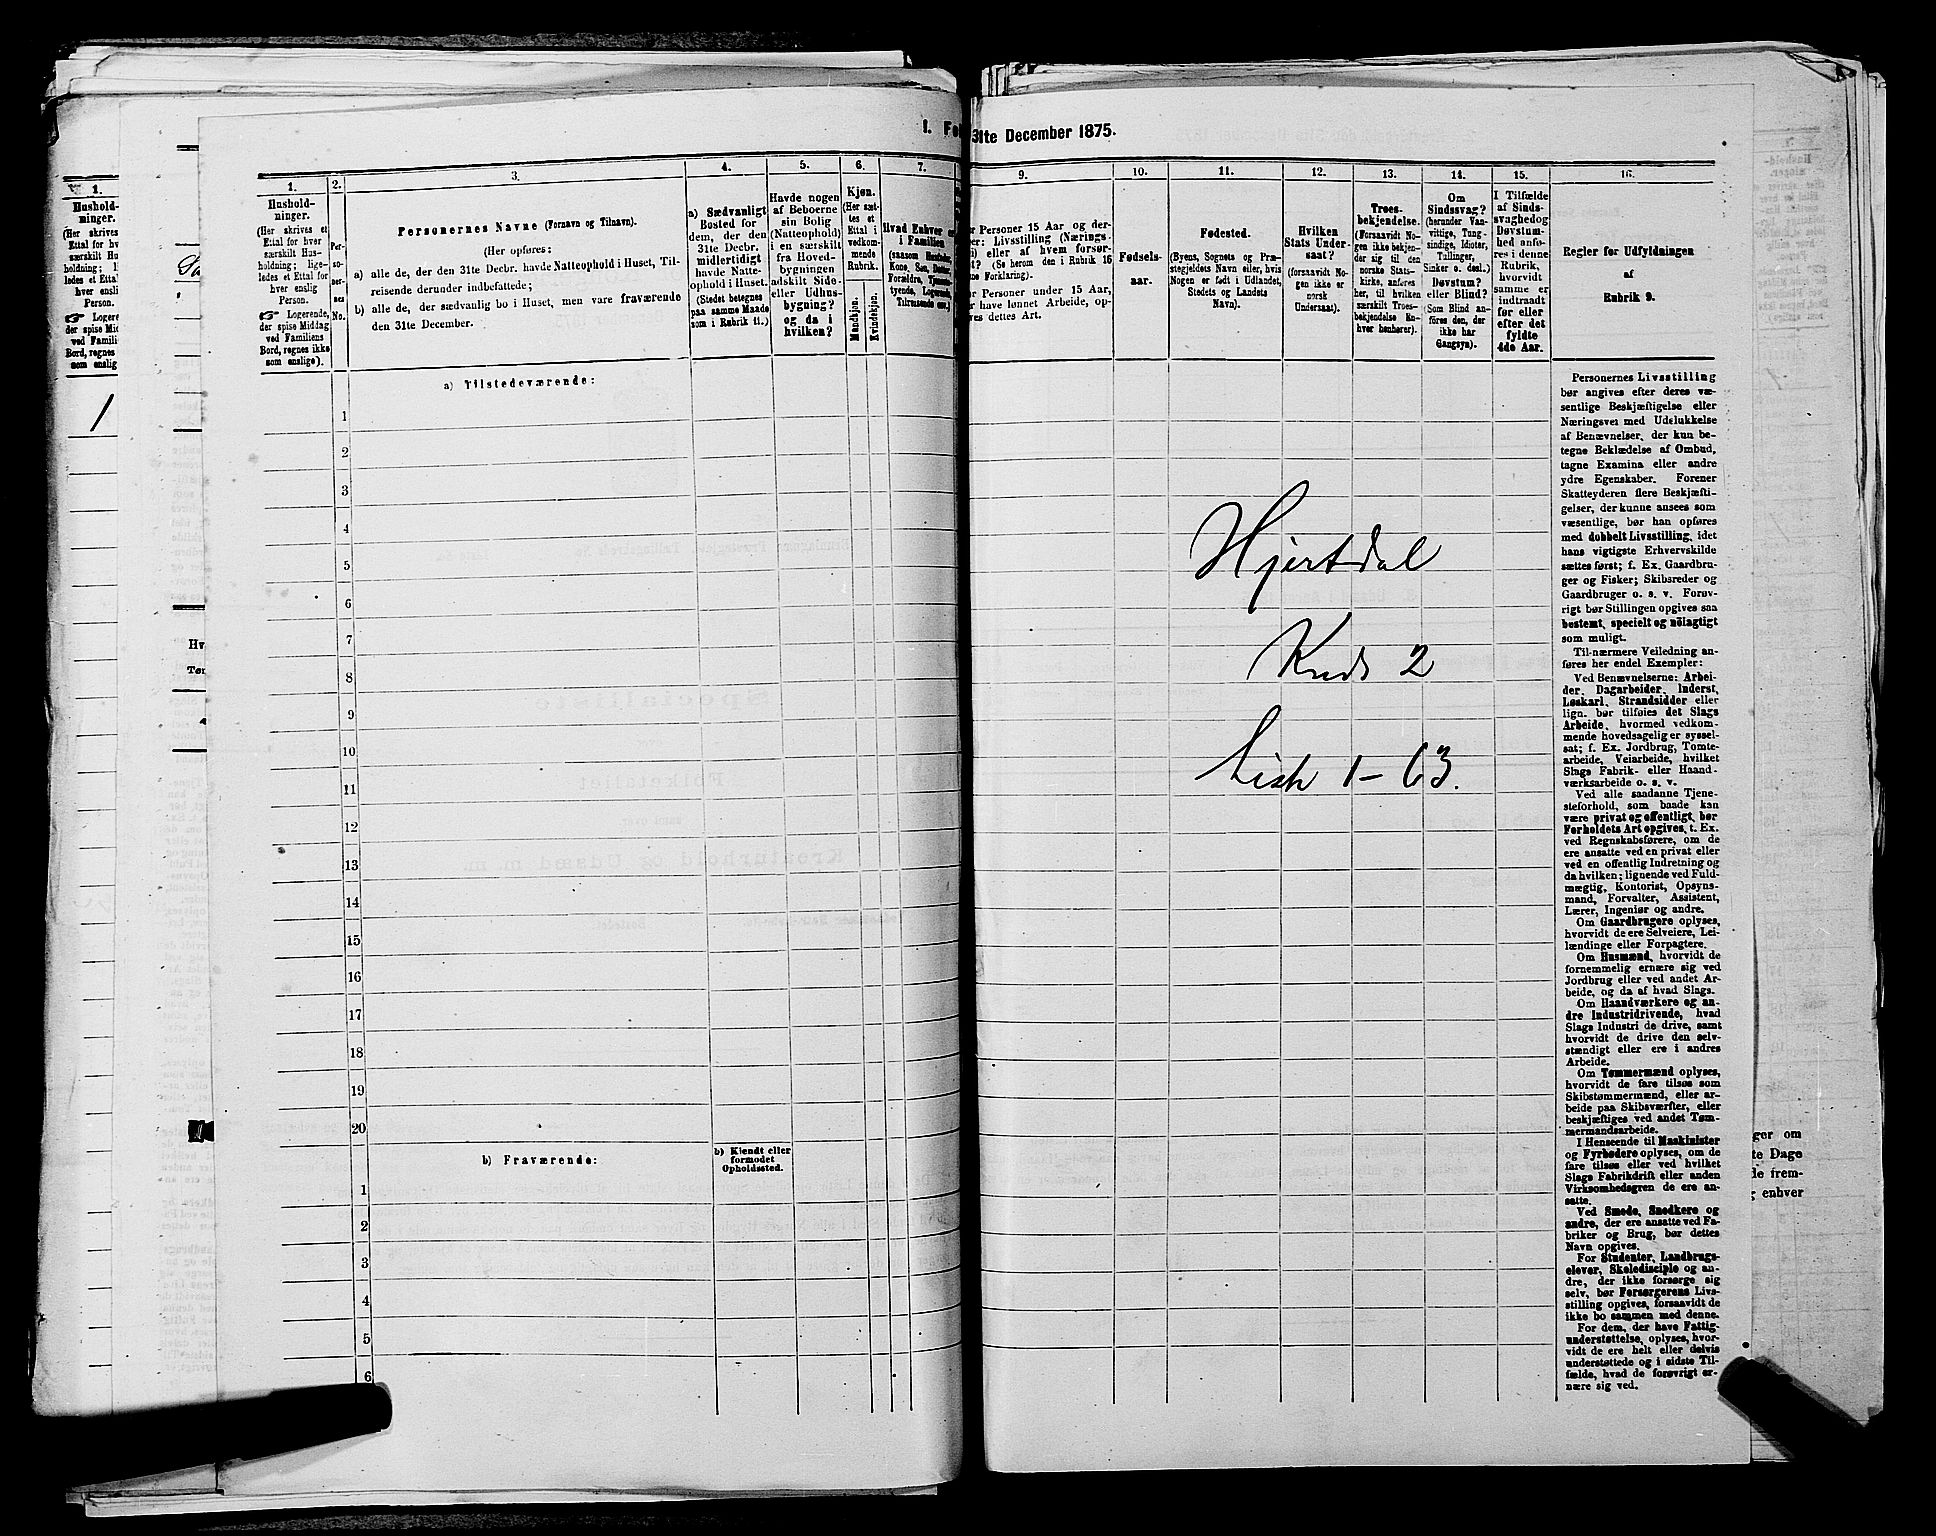 1. Fo
31te December 1875.
1.
Hushold-
ninger.
(Her skrives et
Ettal for hv
særskilt Hus
holdning; l
ledes et Ettal
hver enslig
Person.
☞ Logerende
der spise Mid
ved Famili
Bord, regnes
som enslig
1
1.
Hushold-
ninger.
(Her skrives et
Ettal for hver
særskilt Hus-
holdning; lige-
ledes et Ettal for
hver enslig
Person.
☞ Logerende,
der spise Middag
ved Familiens
Bord, regnes ikke
som enslige).
2.
Per-
so-
ner-
nes
No.
3.
Personernes Navne (Fornavn og Tilnavn).
(Her opføres:
a) alle de, der den 31te Decbr. havde Natteophold i Huset, Til-
reisende derunder indbefattede;
b) alle de, der sædvanlig bo i Huset, men vare fraværende
den 31te December.
4.
a) Sædvanligt
Bosted for
dem, der den
31te Decbr.
midlertidigt
havde Natte-
ophold i Huset.
(Stedet betegnes
paa samme Maade
som i Rubrik 11.)
5.
Havde nogen
af Beboerne
sin Bolig
(Natteophold)
i en særskilt
fra Hoved-
bygningen
adskilt Side-
eller Udhus-
bygning?
og da i
hvilken?
6.
Kjøn.
(Her sæt-
tes et
Ettal i
vedkom-
mende
Rubrik.
Mandkjøn.
Kvindekjøn.
7.
Hvad Enhver er
i Familien
(saasom Husfader,
Kone, Søn, Datter,
Forældre, Tjeneste-
tyende, Logerende,
Tilreisende osv.)
9.
r Personer 15 Aar og der-
er: Livsstilling (Nærings-
i) eller af hvem forsør-
t? (Se herom den i Rubrik 16
ne Forklaring).
or Personer under 15 Aar,
r have lønnet Arbeide, op-
res dettes Art.
10.
Fødsels-
aar.
11.
Fødested.
(Byens, Sognets og Præ-
stegjeldets Navn eller, hvis
Nogen er født i Udlandet,
Stedets og Landets
Navn).
12.
Hvilken
Stats Under-
saat?
(forsaavidt No-
gen ikke er
norsk
Undersaat).
13.
Troes-
bekjendelse.
(Forsaavidt No-
gen ikke bekjen-
der sig til den
norske Stats-
kirke, anføres
her, til hvilken
særskilt Troes-
bekjendelse En-
hver henhører).
14.
Om
Sindssvag?
(herunder Van-
vittige, Tung-
sindige, Idioter,
Tullinger,
Sinker o. desl.)
Døvstum?
eller Blind?
(Som Blind an-
føres den, der
ikke har
Gangsyn).
15.
I Tilfælde
af Sinds-
svaghedog
Døvstum-
hed anfø-
res i denne
Rubrik,
hvorvidt
samme er
indtraadt
før eller
efter det
fyldte
4de Aar.
16.
Regler for Udfyldningen
af
Rubrik 9.
a) Tilstedeværende:
1
2
3
4
5
6
7
8
9
10
11
12
13
14
15
16
17
18
19
20
b) Fraværende:
b) Kjendt eller
formodet
Opholdssted.
1
2
3
4
5
6
Hjertdal
Kreds 2
Liste 1-63.
Personernes Livsstilling
bør angives efter deres væ-
sentlige Beskjæftigelse eller
Næringsvei med Udelukkelse
af Benævnelser, der kun be-
tegne Beklædelse af Ombud,
tagne Examina eller andre
ydre Egenskaber. Forener
Skatteyderen flere Beskjæfti-
gelser, der kunne ansees som
væsentlige, bør han opføres
med dobbelt Livsstilling, idet
hans vigtigste Erhvervskilde
sættes først; f. Ex. Gaardbru-
ger og Fisker; Skibsreder og
Gaardbruger o. s. v. Forøv-
rigt bør Stillingen opgives saa
bestemt, specielt og nöiagtigt
som muligt.
Til nærmere Veiledning an-
føres her endel Exempler:
Ved Benævnelserne: Arbei-
der, Dagarbeider, Inderst,
Løskarl, Strandsidder eller
lign. bør tilføies det Slags
Arbeide, hvormed vedkom-
mende hovedsagelig er syssel-
sat; f. Ex. Jordbrug, Tomte-
arbeide, Veiarbeide, hvilket
Slags Fabrik- eller Haand-
værksarbeide o. s. v.
Ved alle saadanne Tjene-
steforhold, som baade kan
være privat og offentligt, bør
Forholdets Art opgives, t. Ex.
ved Regnskabsførere, om de
ere ansatte ved en privat eller
ved en offentlig Indretning og
da hvilken; lignende ved Fuld-
mægtig, Kontorist, Opsyns-
mand, Forvalter, Assistent,
Lærer, Ingeniør og andre.
Om Gaardbrugere oplyses,
hvorvidt de ere Selveiere, Lei-
lændinge eller Forpagtere.
Om Husmænd, hvorvidt de
fornemmelig ernære sig ved
Jordbrug eller ved andet Ar-
beide, og da af hvad Slags.
Om Haandværkere og an-
dre Industridrivende, hvad
Slags Industri de drive, samt
hvorvidt de drive den selv-
stændigt eller ere i andres
Arbeide.
Om Tømmermænd oplyses,
hvorvidt de fare tilsøs som
Skibstømmermænd, eller ar-
beide paa Skibsværfter, eller
beskjæftiges ved andet Tøm-
mermandsarbeide.
I Henseende til Maskinister
og Fyrbødere oplyses, om de
fare tilsøs eller ved hvilket
Slags Fabrikdrift eller anden
Virksombedsgren de ere an-
satte.
Ved Smede, Snedkere og
andre, der ere ansatte ved Fa-
briker og Brug, bør dettes
Navn opgives.
For Studenter, Landbrugs-
elever, Skoledisciple og an-
dre, der ikke forsørge sig
selv, bør Forsørgerens Livs-
stilling opgives, forsaavidt de
ikke bo sammen med denne.
For dem, der have Fattig-
understøttelse, oplyses, hvor-
vidt de ere helt eller delvis
understøttede og i sidste Til-
fælde, hvad de forøvrigt er-
nære sig ved.
ger om
te Dage
de frem-
g enhver